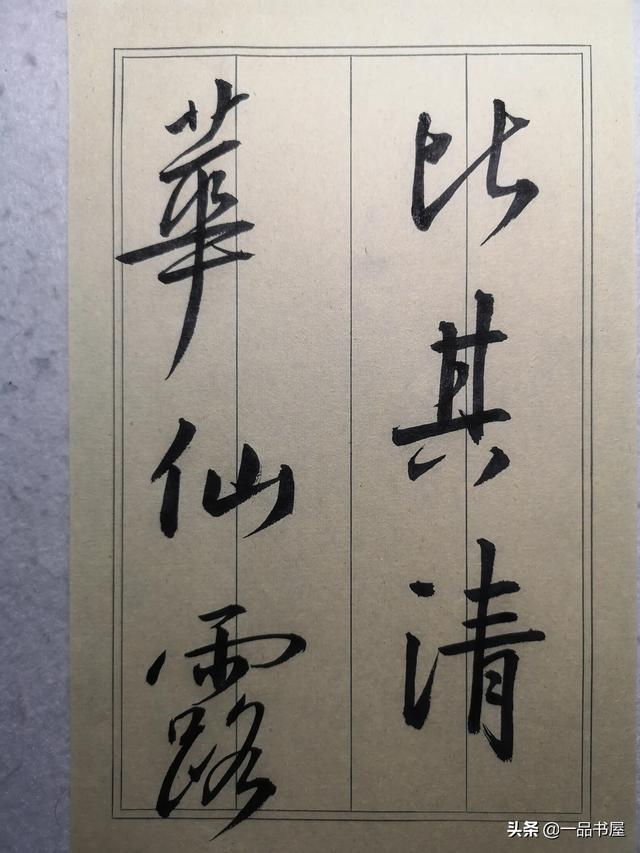 比其清
華仙露
头条 @一品书屋